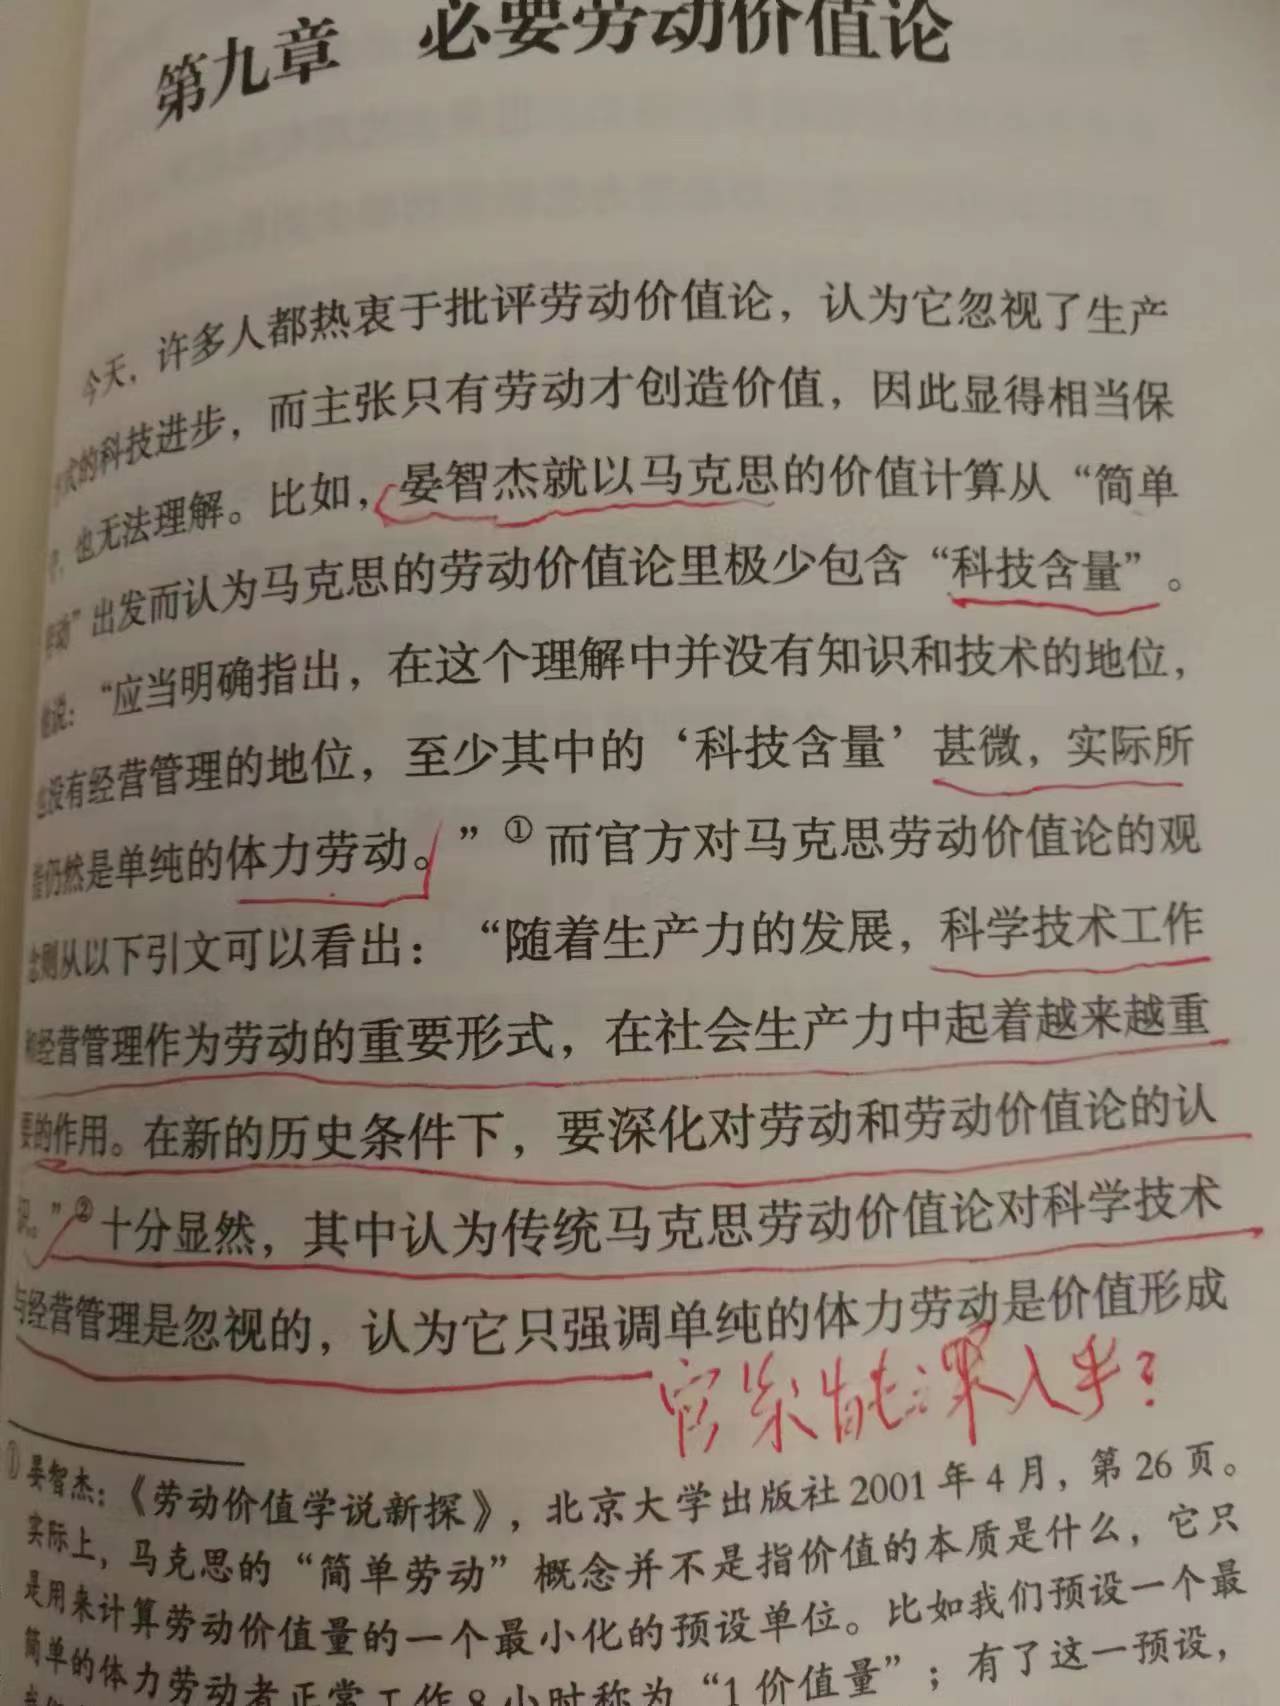 第九章 必要劳动价值论
今天，许多人都热衷于批评劳动价值论，认为它忽视了生产
式的科技进步，而主张只有劳动才创造价值，因此显得相当保
，也无法理解。比如，晏智杰就以马克思的价值计算从“简单
劳动”出发而认为马克思的劳动价值论里极少包含“科技含量”。
他说：“应当明确指出，在这个理解中并没有知识和技术的地位，
也没有经营管理的地位，至少其中的‘科技含量’甚微，实际所
指仍然是单纯的体力劳动。”①而官方对马克思劳动价值论的观
念则从以下引文可以看出：“随着生产力的发展，科学技术工作
和经营管理作为劳动的重要形式，在社会生产力中起着越来越重
要的作用。在新的历史条件下，要深化对劳动和劳动价值论的认
识。”②十分显然，其中认为传统马克思劳动价值论对科学技术
与经营管理是忽视的，认为它只强调单纯的体力劳动是价值形成
官 能深入乎？
①晏智杰：《劳动价值学说新探》，北京大学出版社2001年4月，第26页。
实际上，马克思的“简单劳动”概念并不是指价值的本质是什么，它只
是用来计算劳动价值量的一个最小化的预设单位。比如我们预设一个最
简单的体力劳动者正常工作8小时称为“1价值量”；有了这一预设，